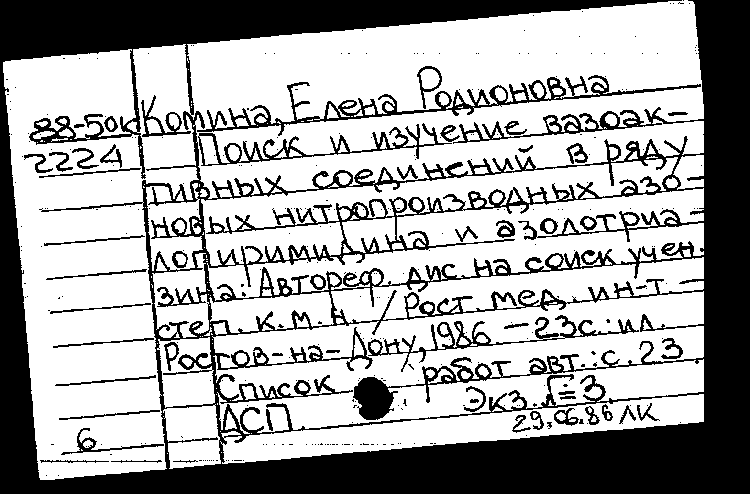 88-50к Комина, Елена Родионовна
2224 Поиск и изучение вазоак-
тивных соединений в ряду
новых нитропроизводных азо-
лопиримидина и азолотриа-
зина: Автореф. дис. на соиск. учен.
степ. к. м. н. / Рост. мед. ин-т. -
Ростов-на-Дону, 1986 - 23 с.: ил.
Список работ авт.: с. 23.
ДСП. Экз. = 3.
29.06.86 ЛК
6